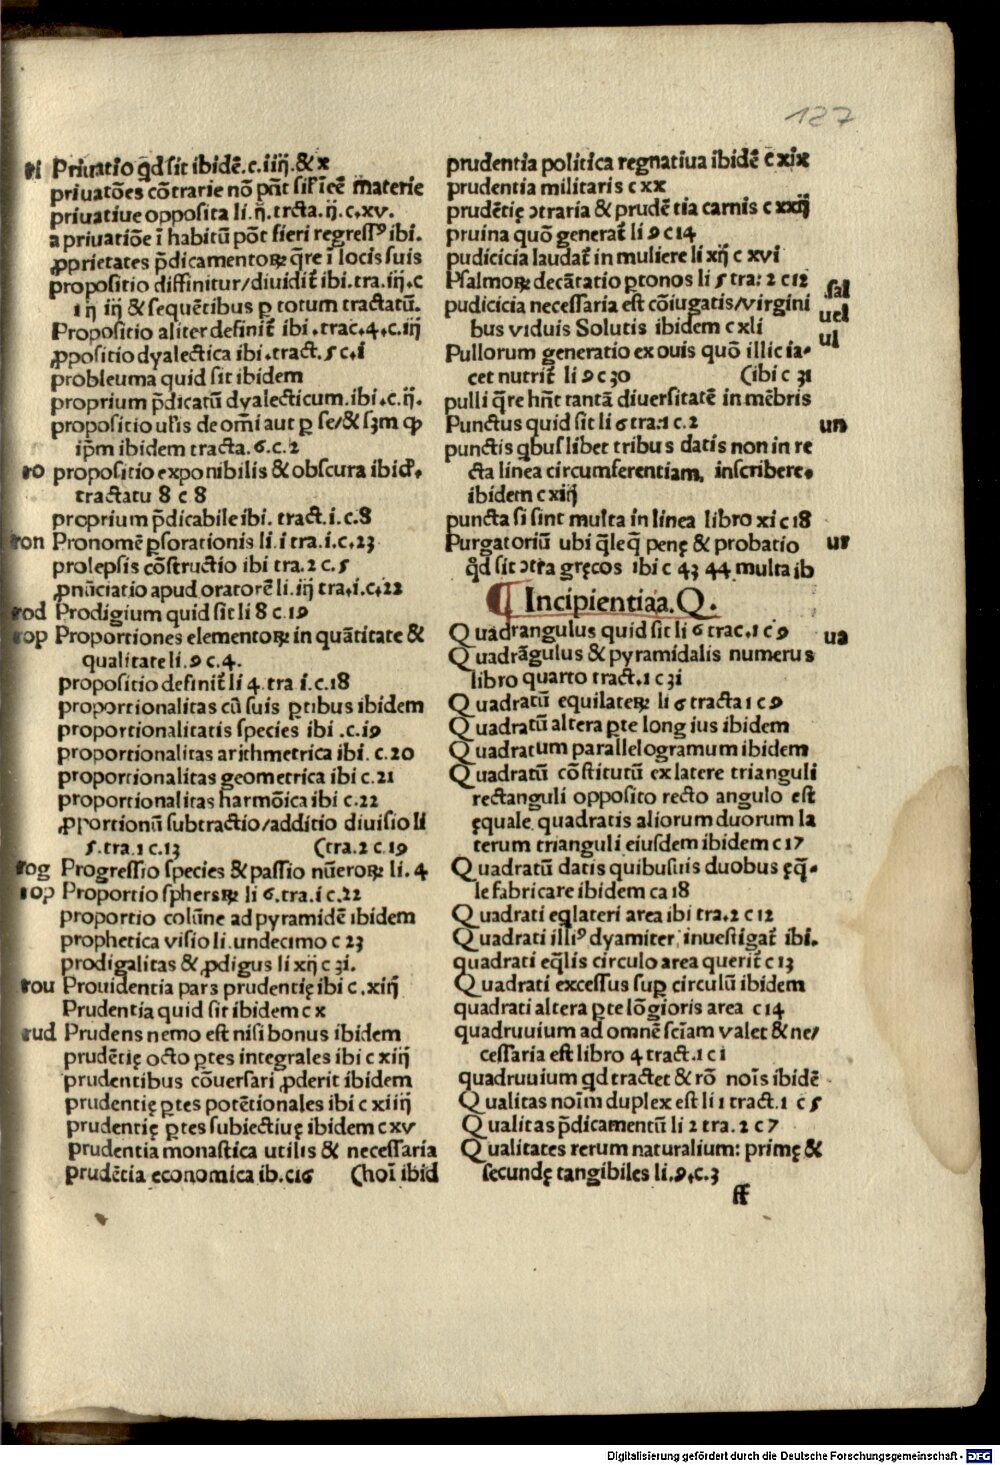 127
ri Priuatio qd sit ibidē.c.iiij.&x
priuatōes cōtrarie nō pn̄t sił īeē materie
priuatiue opposita li.ij.trcta.ij.c.xv.
a priuatiōe ī habitū pōt fieri regressꝰ ibi.
ꝓprietates p̄dicamentoꝝ q̄re ī locis suis
propositio diffinitur/diuidit̄ ibi.tra.iij.c
1 ij iij & sequētibus ꝑ totum tractatū.
Propositio aliter definit̄ ibi.trac.4.c.iij
ꝓpositio dyalectica ibi.tract.5 c.i
probleuma quid sit ibidem
proprium p̄dicatū dyalecticum.ibi.c.ij.
propositio uĺis de om̄i aut ꝑ se/& sꝫm ꝙ
ip̄m ibidem tracta.6.c.2
ro propositio exponibilis & obscura ibid.
tractatu 8 c 8
proprium p̄dicabile ibi. tract.i.c.8
ron Pronomē ꝑs orationis li.i tra.i.c.23
prolepsis cōstructio ibi tra.2 c.5
ꝓnūciatio apud oratorē li.iij tra.i.c.22
rod Prodigium quid sit li 8 c.19
rop Proportiones elementoꝝ in quātitate &
qualitate li.9 c.4.
propositio definit̄ li 4.tra i.c.18
proportionalitas cū suis ꝑtibus ibidem
proportionalitatis species ibi .c.19
proportionalitas arithmetrica ibi. c.20
proportionalitas geometrica ibi c.21
proportionalitas harmōica ibi c.22
ꝓportionū subtractio/additio diuisio li
5.tra.1 c.13 (tra.2 c.19
rog Progressio species & passio nūeroꝝ li.4
rop Proportio spherꝝ li 6.tra.i c.22
proportio colūne ad pyramidē ibidem
prophetica visio li.undecimo c 23
prodigalitas & ꝓdigus li xij c 3i.
rou Prouidentia pars prudentię ibi c.xiij
Prudentia quid sit ibidem c x
rud Prudens nemo est nisi bonus ibidem
prudētię octo ꝑtes integrales ibi c xiij
prudentibus cōuersari ꝓderit ibidem
prudentię ꝑtes potētionales ibi c xiiij
prudentię ꝑtes subiectiuę ibidem c xv
prudentia monastica utilis & necessaria
prudētia economica ib.c16 (hoī ibid
prudentia politica regnatiua ibidē c xix
prudentia militaris c xx
prudētię ɔtraria & prudē tia carnis c xxij
pruina quō generat̄ li 9 c 14
pudicicia laudat̄ in muliere li xij c xvi
sal Psalmoꝝ decātatio ꝑ tonos li 5 tra: 2 c 12
ucl pudicicia necessaria est cōiugatis/virgini
bus viduis Solutis ibidem c xli
ul Pullorum generatio ex ouis quō illic ia-
cet nutrit̄ li 9 c 30 (ibi c 31
pulli q̄re hn̄t tantā diuersitatē in mēbris
un Punctus quid sit li 6 tra:1 c.2
punctis qbuslibet tribus datis non in re
cta linea circumferentiam inscribere.
ibidem c xiij
puncta si sint multa in linea libro xi c 18
ur Purgatoriū ubi q̄leq̄ penę & probatio
qd sit ɔtra gręcos ibi c 43 44 multa ib
¶ Incipientia a.Q.
ua Quadrangulus quid sit li 6 trac.1 c 9
Quadrāgulus & pyramidalis numerus
libro quarto tract.1 c 3i
Quadratū equilateꝝ li 6 tracta 1 c 9
Quadratū altera ꝑte longius ibidem
Quadratum parallelogramum ibidem
Quadratū cōstitutū ex latere trianguli
rectanguli opposito recto angulo est
ęquale quadratis aliorum duorum la
terum trianguli eiusdem ibidem c 17
Quadratū datis quibusuis duobus ęq̄-
le fabricare ibidem ca 18
Quadrati eqlateri area ibi tra.2 c 12
Quadrati illiꝰ dyamiter inuestigat̄ ibi.
quadrati eq̄lis circulo area querit̄ c 13
Quadrati excessus suꝑ circulū ibidem
quadrati altera ꝑte lōgioris area c 14
quadruuium ad omnē sciam valet & ne/
cessaria est libro 4 tract.1 c i
quadruuium qd tractet & rō nois ibidē
Qualitas noim duplex est li 1 tract.1 c 5
Qualitas p̄dicamentū li 2 tra.2 c 7
Qualitates rerum naturalium: primę &
secundę tangibiles li.9.c.3
ff
Digitalisierung gefördert durch die Deutsche Forschungsgemeinschaft - DFG